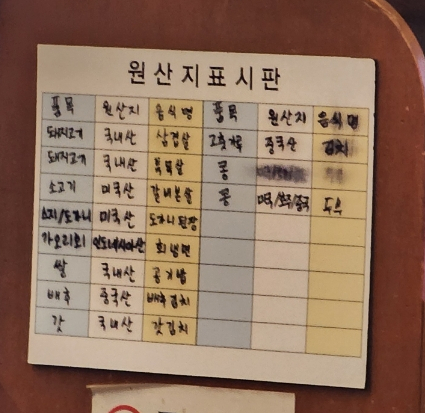 원산지표시판
품목 원산지 음식명 품목 원산지 음식명
돼지고기 국내산 삼겹살 고춧가루 중국산 김치
돼지고기 국내산 콩
소고기 미국산 갈비본살 콩 미국/호주/중국 두부
스지/도가니 미국산 도가니된장
가오리회 인도네시아산 회냉면
쌀 국내산 공기밥
배추 중국산 배추김치
갓 국내산 갓김치